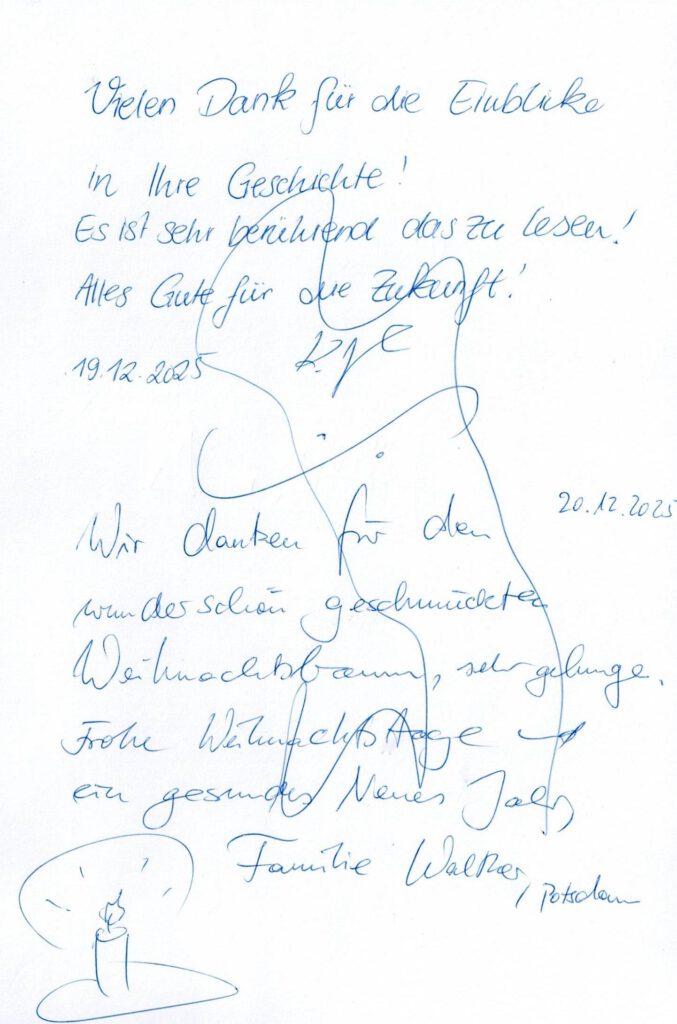 Vielen Dank für die Einblicke
in Ihre Geschichte!
Es ist sehr berührend das zu lesen!
Alles Gute für die Zukunft!
19.12.2025
20.12.2025
Wir danken für den
wunderschön geschmückten
Weihnachtsbaum, sehr gelunge.
Frohe Weihnachtstage
ein gesundes Neues Jahr
Familie Walther
/ Potsdam